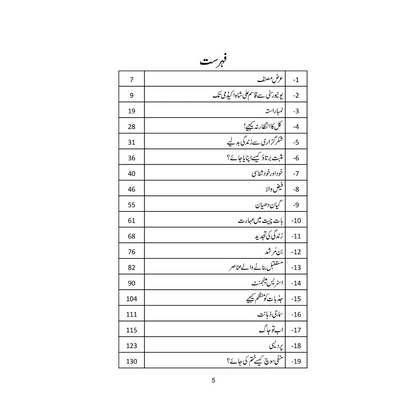 فہرست
1- عرض مصنف 7
2- یونیورسٹی سے قاسم علی شاہ اکیڈمی تک 9
3- لمبا راستہ 19
4- کل کا انتظار نہ کیجیے! 28
5- شکر گزاری سے زندگی بدلیے 31
6- مثبت برتاؤ کیسے اپنایا جائے؟ 36
7- خود اور خود شناسی 40
8- فیض والا 46
9- گیان و دھیان 55
10- بات چیت میں مہارت 61
11- زندگی کی تجدید 68
12- بن مرشد 76
13- مستقبل بنانے والے عناصر 82
14- اسٹریس مینجمنٹ 90
15- جذبات کو منظم کیجیے 104
16- سماجی ذہانت 111
17- اب تو جاگ 115
18- پردیسی 123
19- منفی سوچ کیسے ختم کی جائے؟ 130
5